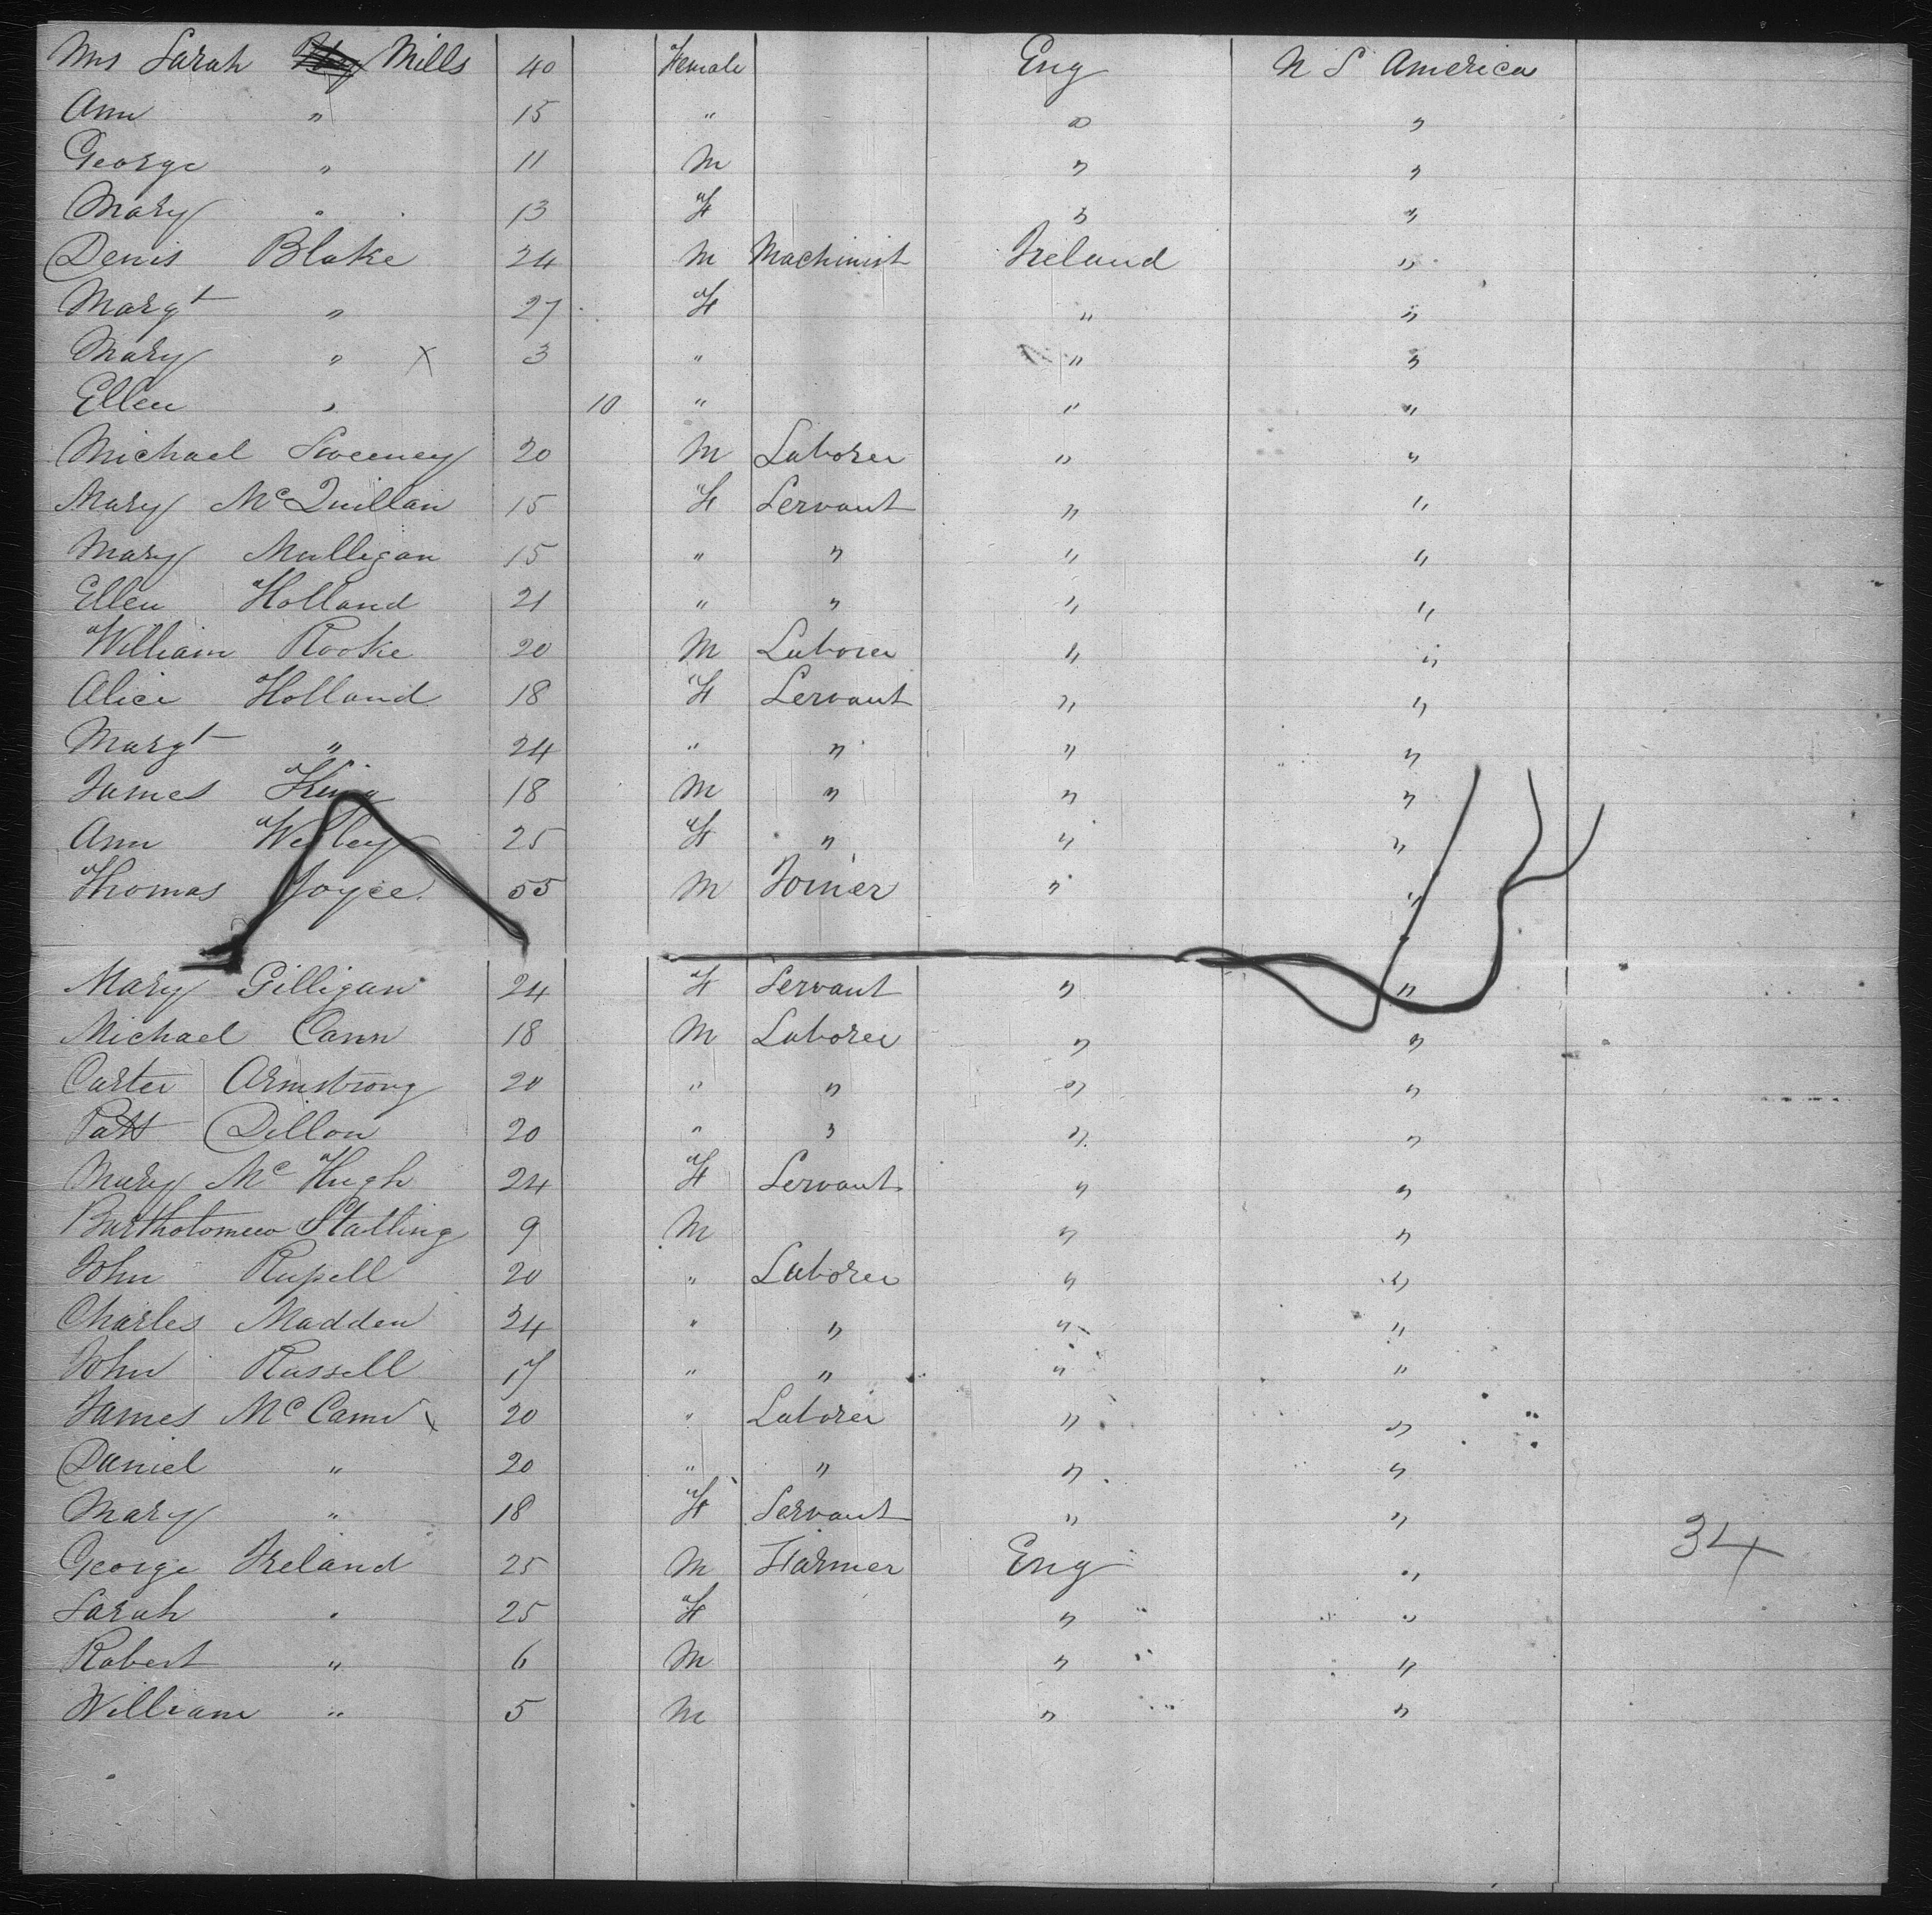 Mrs Sarah Mills 40 Female Eng U S America
Ann " 15 " " "
George " 11 M " "
Mary " 13 F " "
Denis Blake 24 M Machinist Ireland "
Margt " 27 F " "
Mary " X 3 " " "
Ellen " 10 " " "
Michael Sweeney 20 M Laborer " "
Mary McQuillan 15 F Servant " "
Mary Mulligan 15 " " " "
Ellen Holland 21 " " " "
William Rooke 20 M Laborer " "
Alice Holland 18 F Servant " "
Margt " 24 " " " "
James King 18 M " " "
Ann 25 F " " "
Thomas Joyce 55 M Joiner " "
Mary Gilligan 24 F Servant " "
Michael Cann 18 M Laborer " "
Carter Armstrong 20 " " " "
Patt Dillon 20 " " " "
Mary McHugh 24 F Servant " "
Bartholomew Statling 9 M " "
John Rupell 20 " Laborer " "
Charles Madden 24 " " " "
John Russell 17 " " " "
James McCann x 20 " Laborer " "
Daniel " 20 " " " "
Mary " 18 F Servant " "
George Ireland 25 M Farmer Eng "
34
Sarah " 25 F " "
Robert " 6 M " "
William " 5 M " "